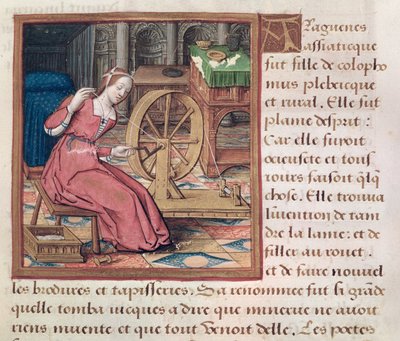 Araguenes
assiaticque
fut fille de colopho
mus plebeicque
et rural. Elle fut
plaine desprit:
Car elle fuyoit
oyeusete et tous
iours faisoit qlq
chose. Elle trouva
linvention de tain
dre la laine: et de
filler au rouet:
et de faire nouvel
les brodures et tapisseries. Sa renommee fut si grande
quelle tomba iucques a dire que minerue ne auoit
riens inuente et que tout venoit delle. Les poetes